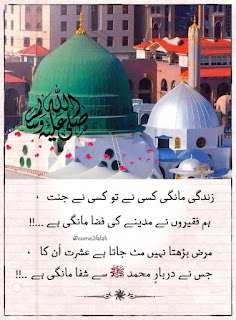 صلى الله عليه وسلم
زندگی مانگی کسی نے تو کسی نے جنت ٠
ہم فقیروں نے مدینے کی فضا مانگی ہے ...!!
#come2falah
مرض بڑھتا نہیں مٹ جاتا ہے عشرت اُن کا ٠
جس نے دربارِ محمد ﷺ سے شفا مانگی ہے ...!!